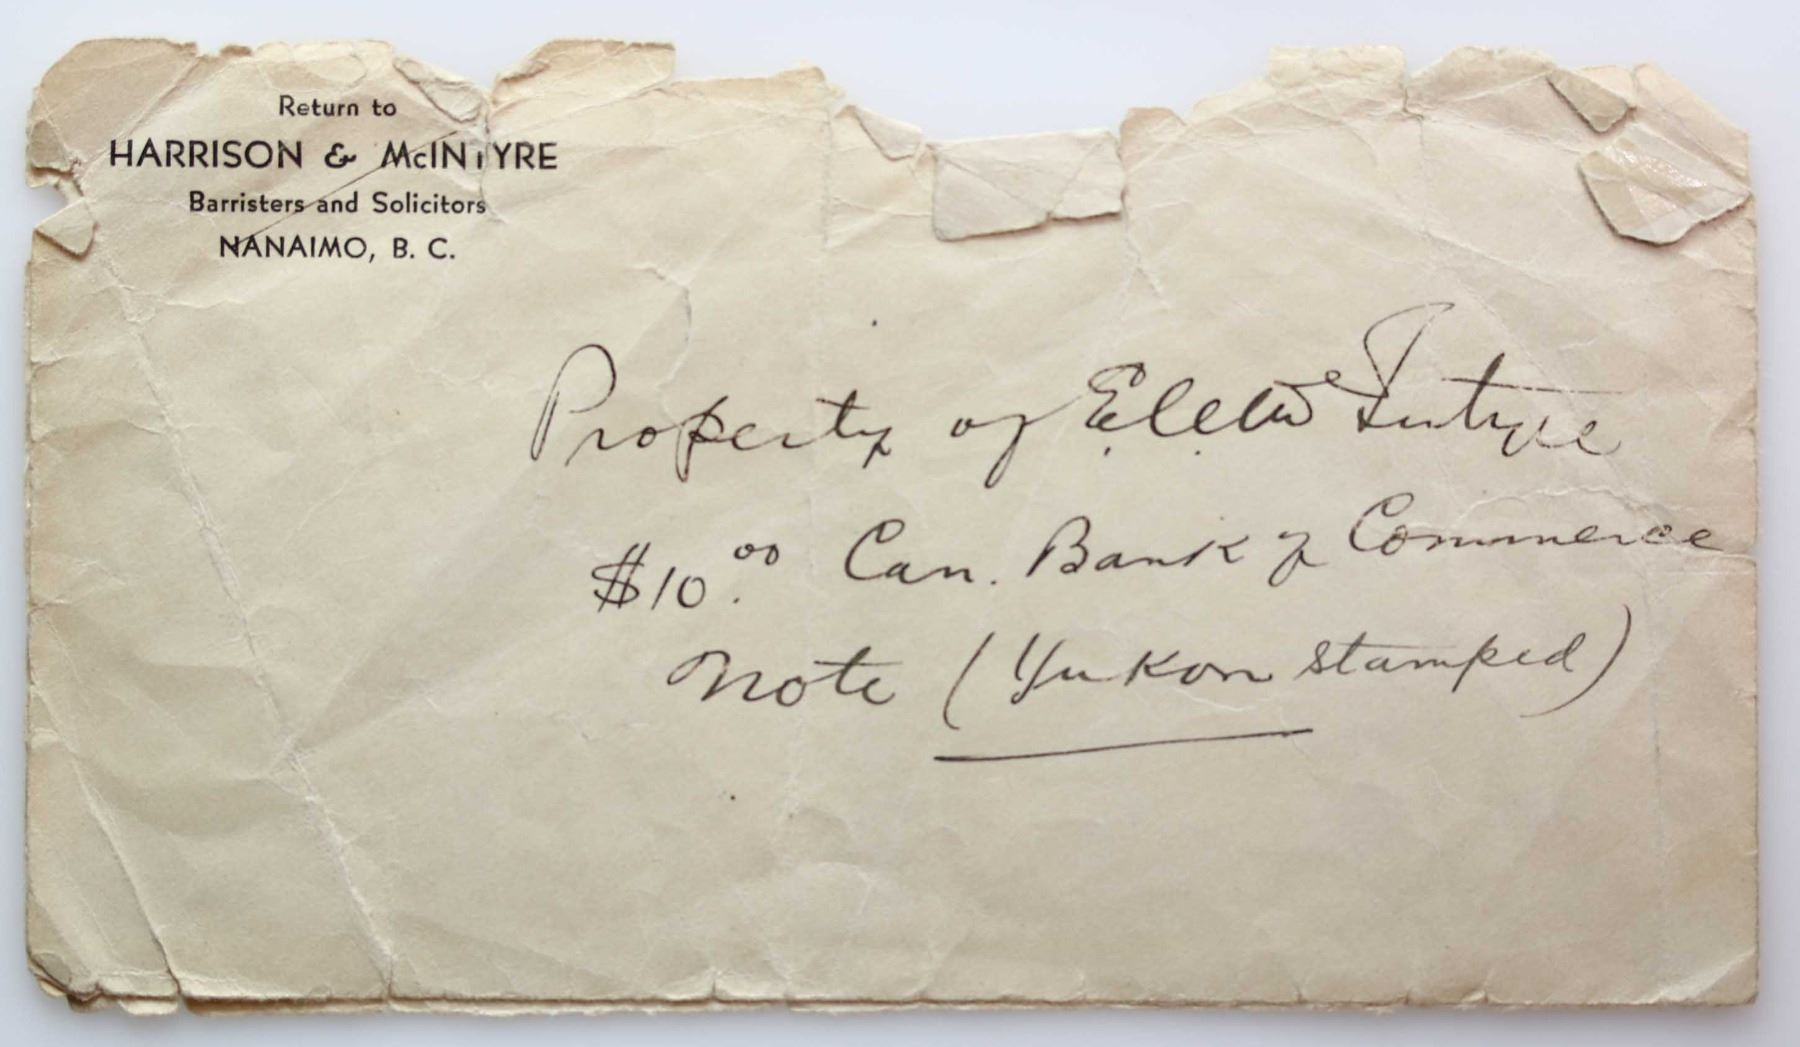 Return to
HARRISON & McINTYRE
Barristers and Solicitors
NANAIMO, B. C.
Property of
$10.00 Can. Bank of Commerce
Note (Yukon stamped)